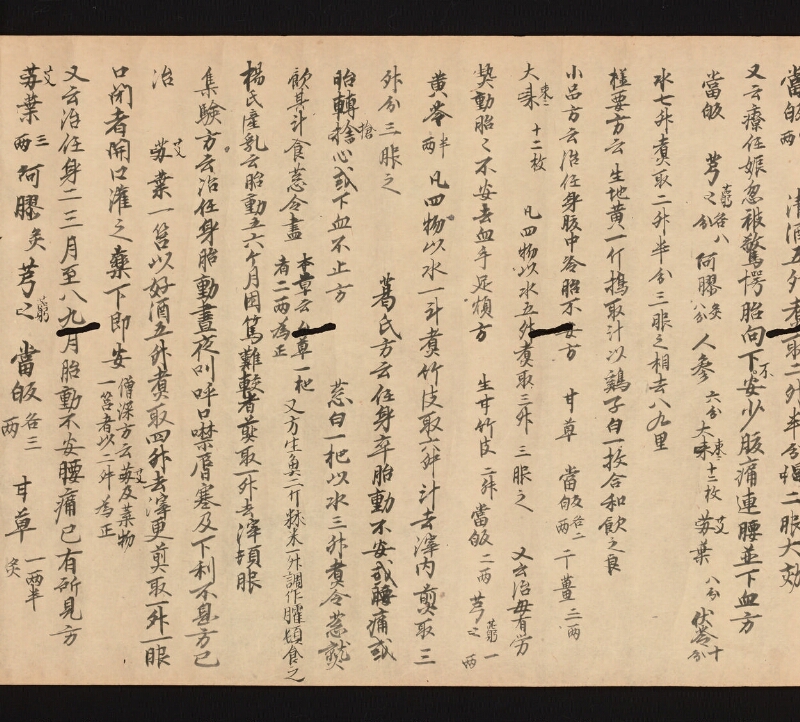 當皈 清酒五升煮取二升半分溫二服大効
又云療任娠忽被驚愕胎向下不安少腹痛連腰並下血方
當皈 芎之 芎各八分 阿膠 炙八分 人参 六分 大棗 十二枚 艾葉 八分 伏苓 十分
水七升煮取二升半分三服之相去八九里
樣要方云生地黄一斤搗取汁以鷄子白一投合和飲之良
小品方云治任身腹中冷胎不安方 甘草 當皈 各二兩 干薑 三兩
大棗 十二枚 凡四物以水五升煮取三升三服之 又云治毋有労
𤍠動胎之不安去血手足煩方 生甘竹皮 二升 當皈 二兩 芎之 一兩
黄芩 半兩 凡四物以水一斗煮竹皮取六升汁去滓內煎取三
升分三服之 葛氏方云任身卒胎動不安或腰痛或
胎轉搶心或下血不止方 葱白一把以水三升煮令葱熟
飲其汁食葱令盡 本草云 草一把者二兩為正 又方生魚二斤秫米一升調作臛頓食之
楊氏產乳云胎動五六ケ月因篤難輕者煎取一升去滓頓服
集驗方云治任身胎動晝夜叫呼口噤脣塞及下利不息方已
治 艾葉一筥以好酒五升煮取四升去滓更煎取一升一服
口閉者開口灌之藥下即安 僧深方云艾葉物一筥者以二升為正
又云治任身二三月至八九月胎動不安腰痛已有所見方
艾葉 三兩 阿膠 炙 芎之 當皈 各三兩 甘草 一兩半炙